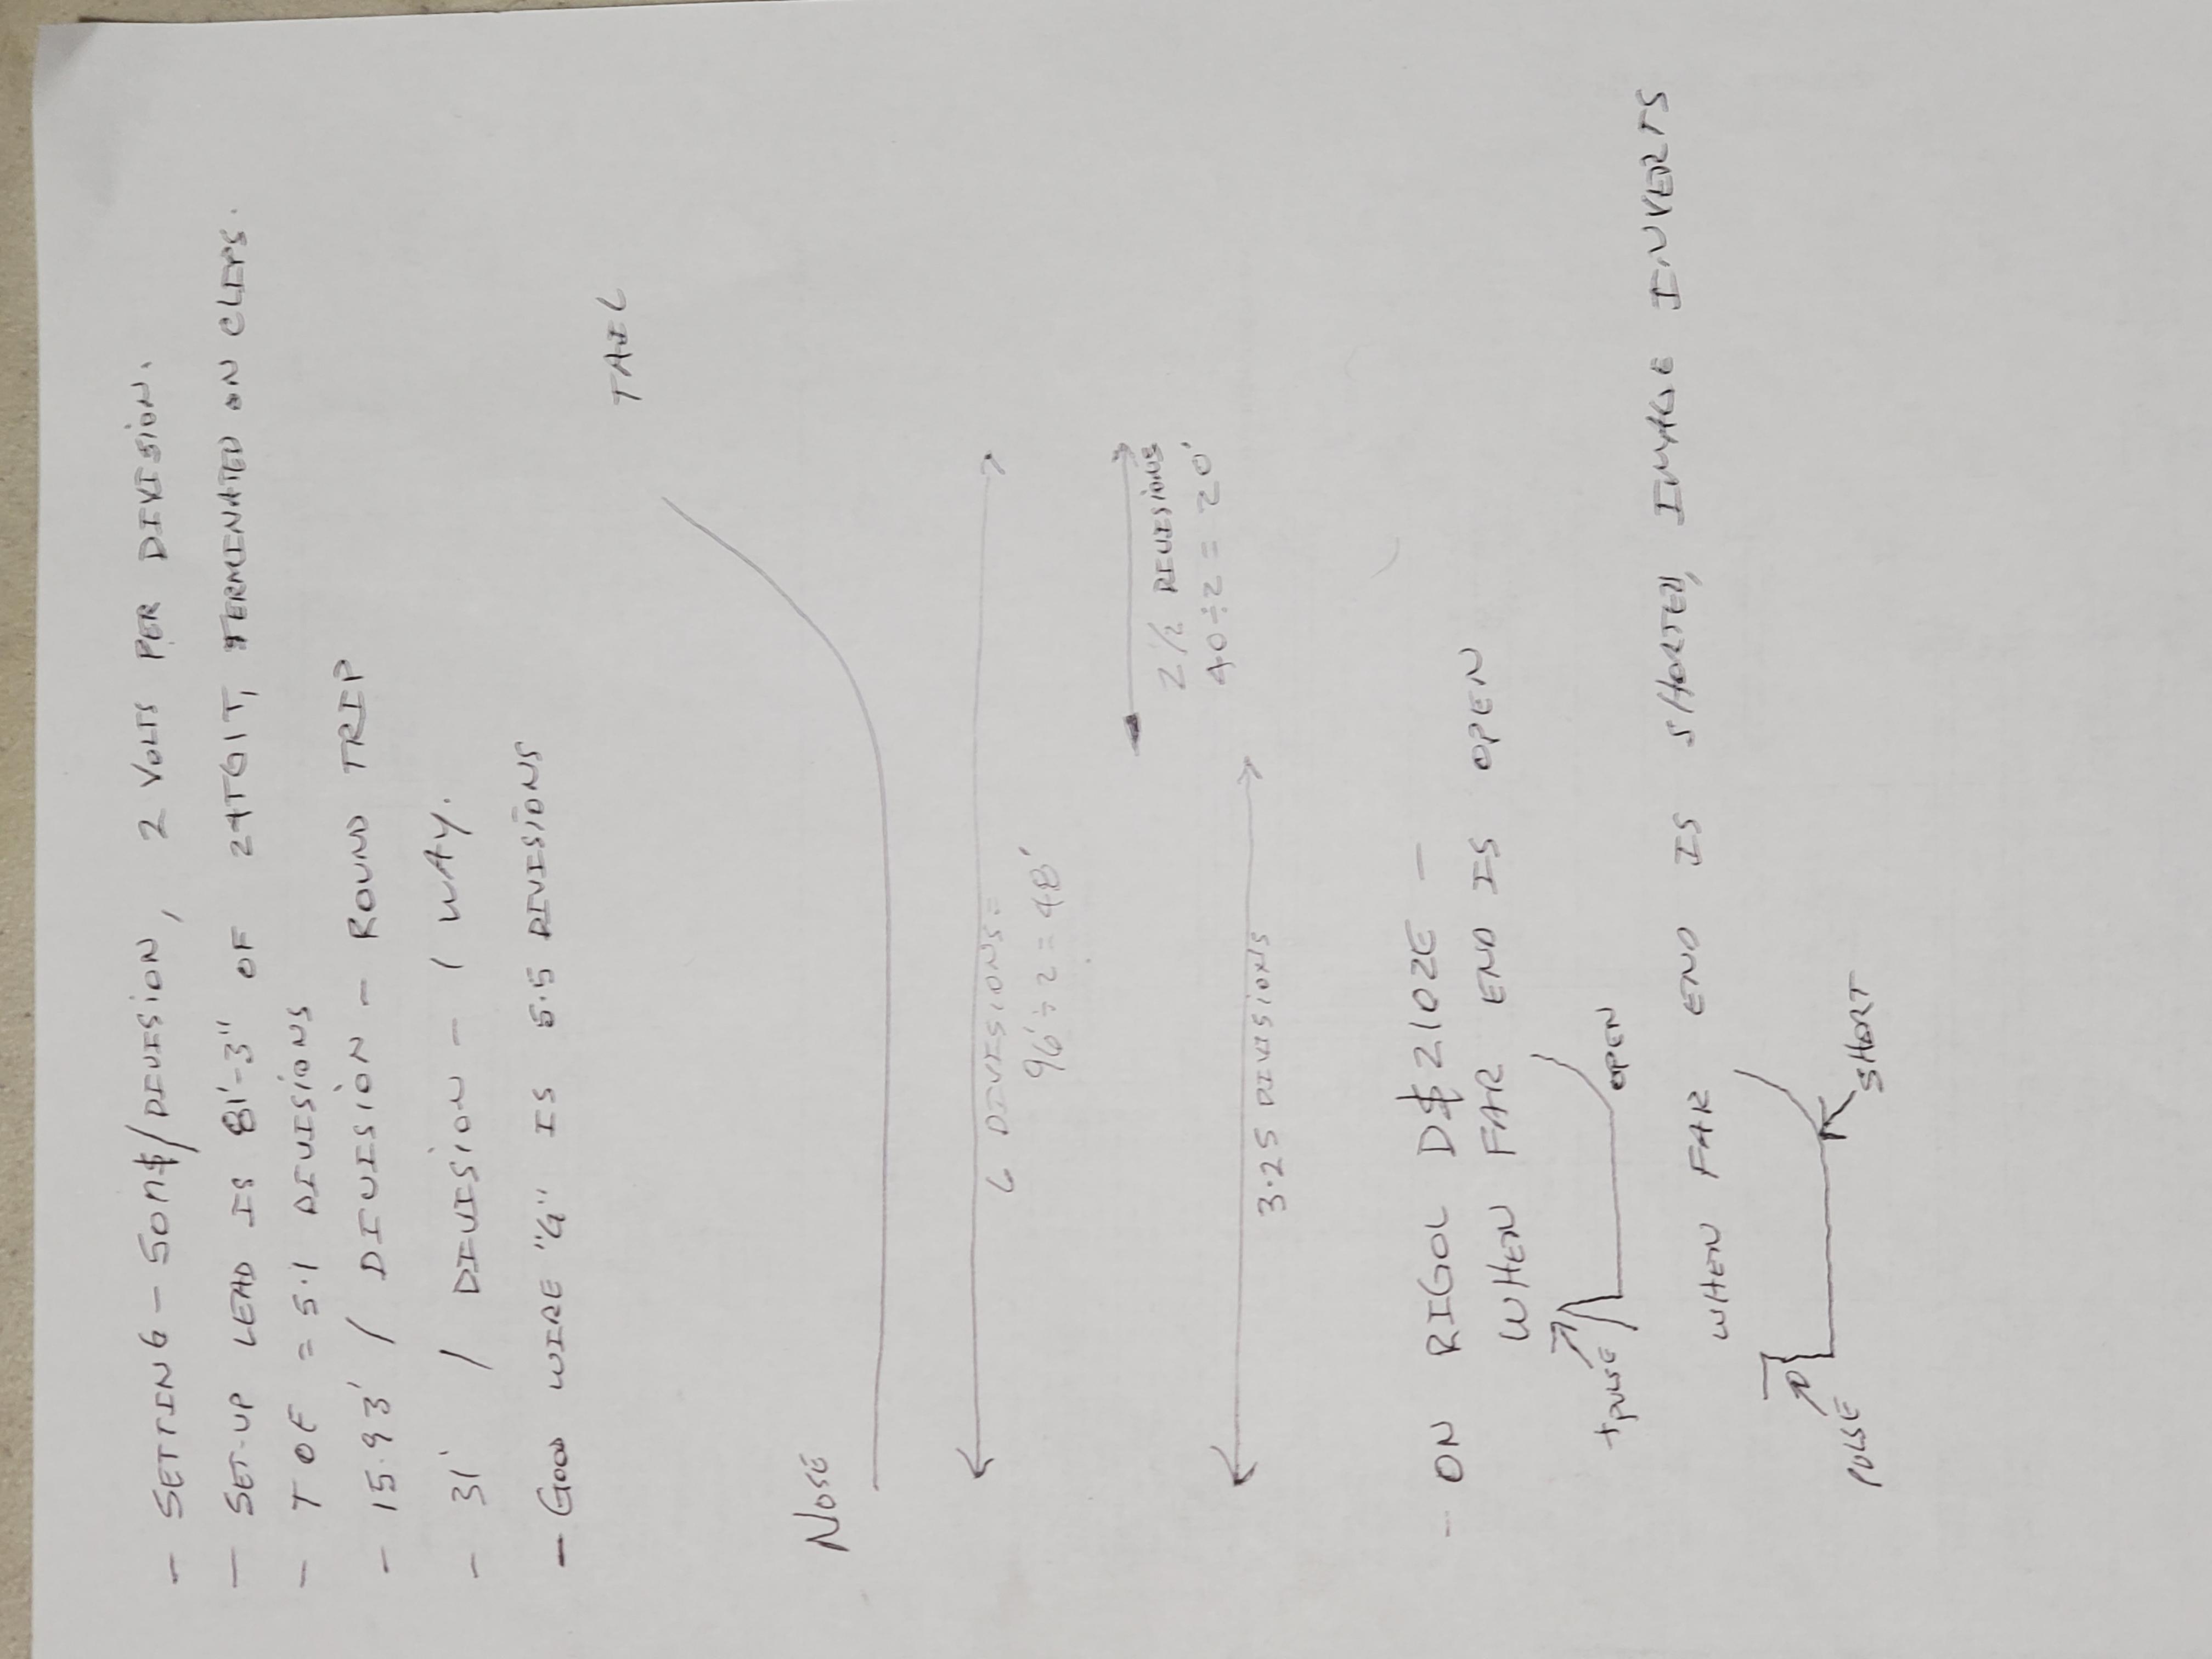 - SETTING - 50n$/DIVISION, 2 VOLTS PER DIVISION.
- SET-UP LEAD IS 81'-3" OF 24TGIT, TERMINATED ON CLIPS.
- TOF = 5.1 DIVISIONS
- 15.93' / DIVISION - ROUND TRIP
- 31' / DIVISION - 1 WAY.
- GOOD WIRE "G" IS 5.5 DIVISIONS
TAIL
NOSE
6 DIVISIONS =
96' ÷ 2 = 48'
2 1/2 DIVISIONS
40 ÷ 2 = 20'
3.25 DIVISIONS
- ON RIGOL D$2102E -
WHEN FAR END IS OPEN
+PULSE
OPEN
WHEN FAR END IS SHORTED, IMAGE INVERTS
PULSE
SHORT